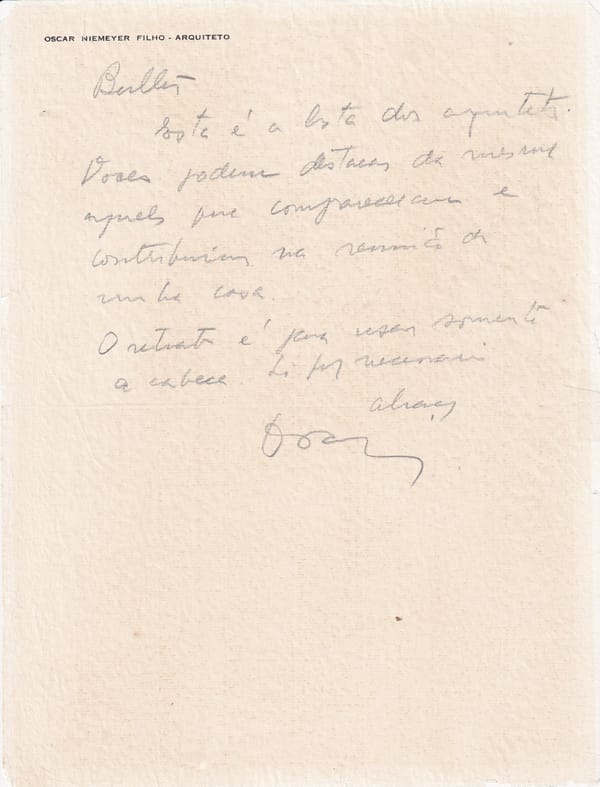 OSCAR NIEMEYER FILHO - ARQUITETO
Esta é a lista dos arquitetos.
Voces podem destacar da mesma
aqueles que compareceram e
contribuiram na reunião de
minha casa.
O retrato é para usar somente
a cabeça. Se for necessario
abraços
Oscar